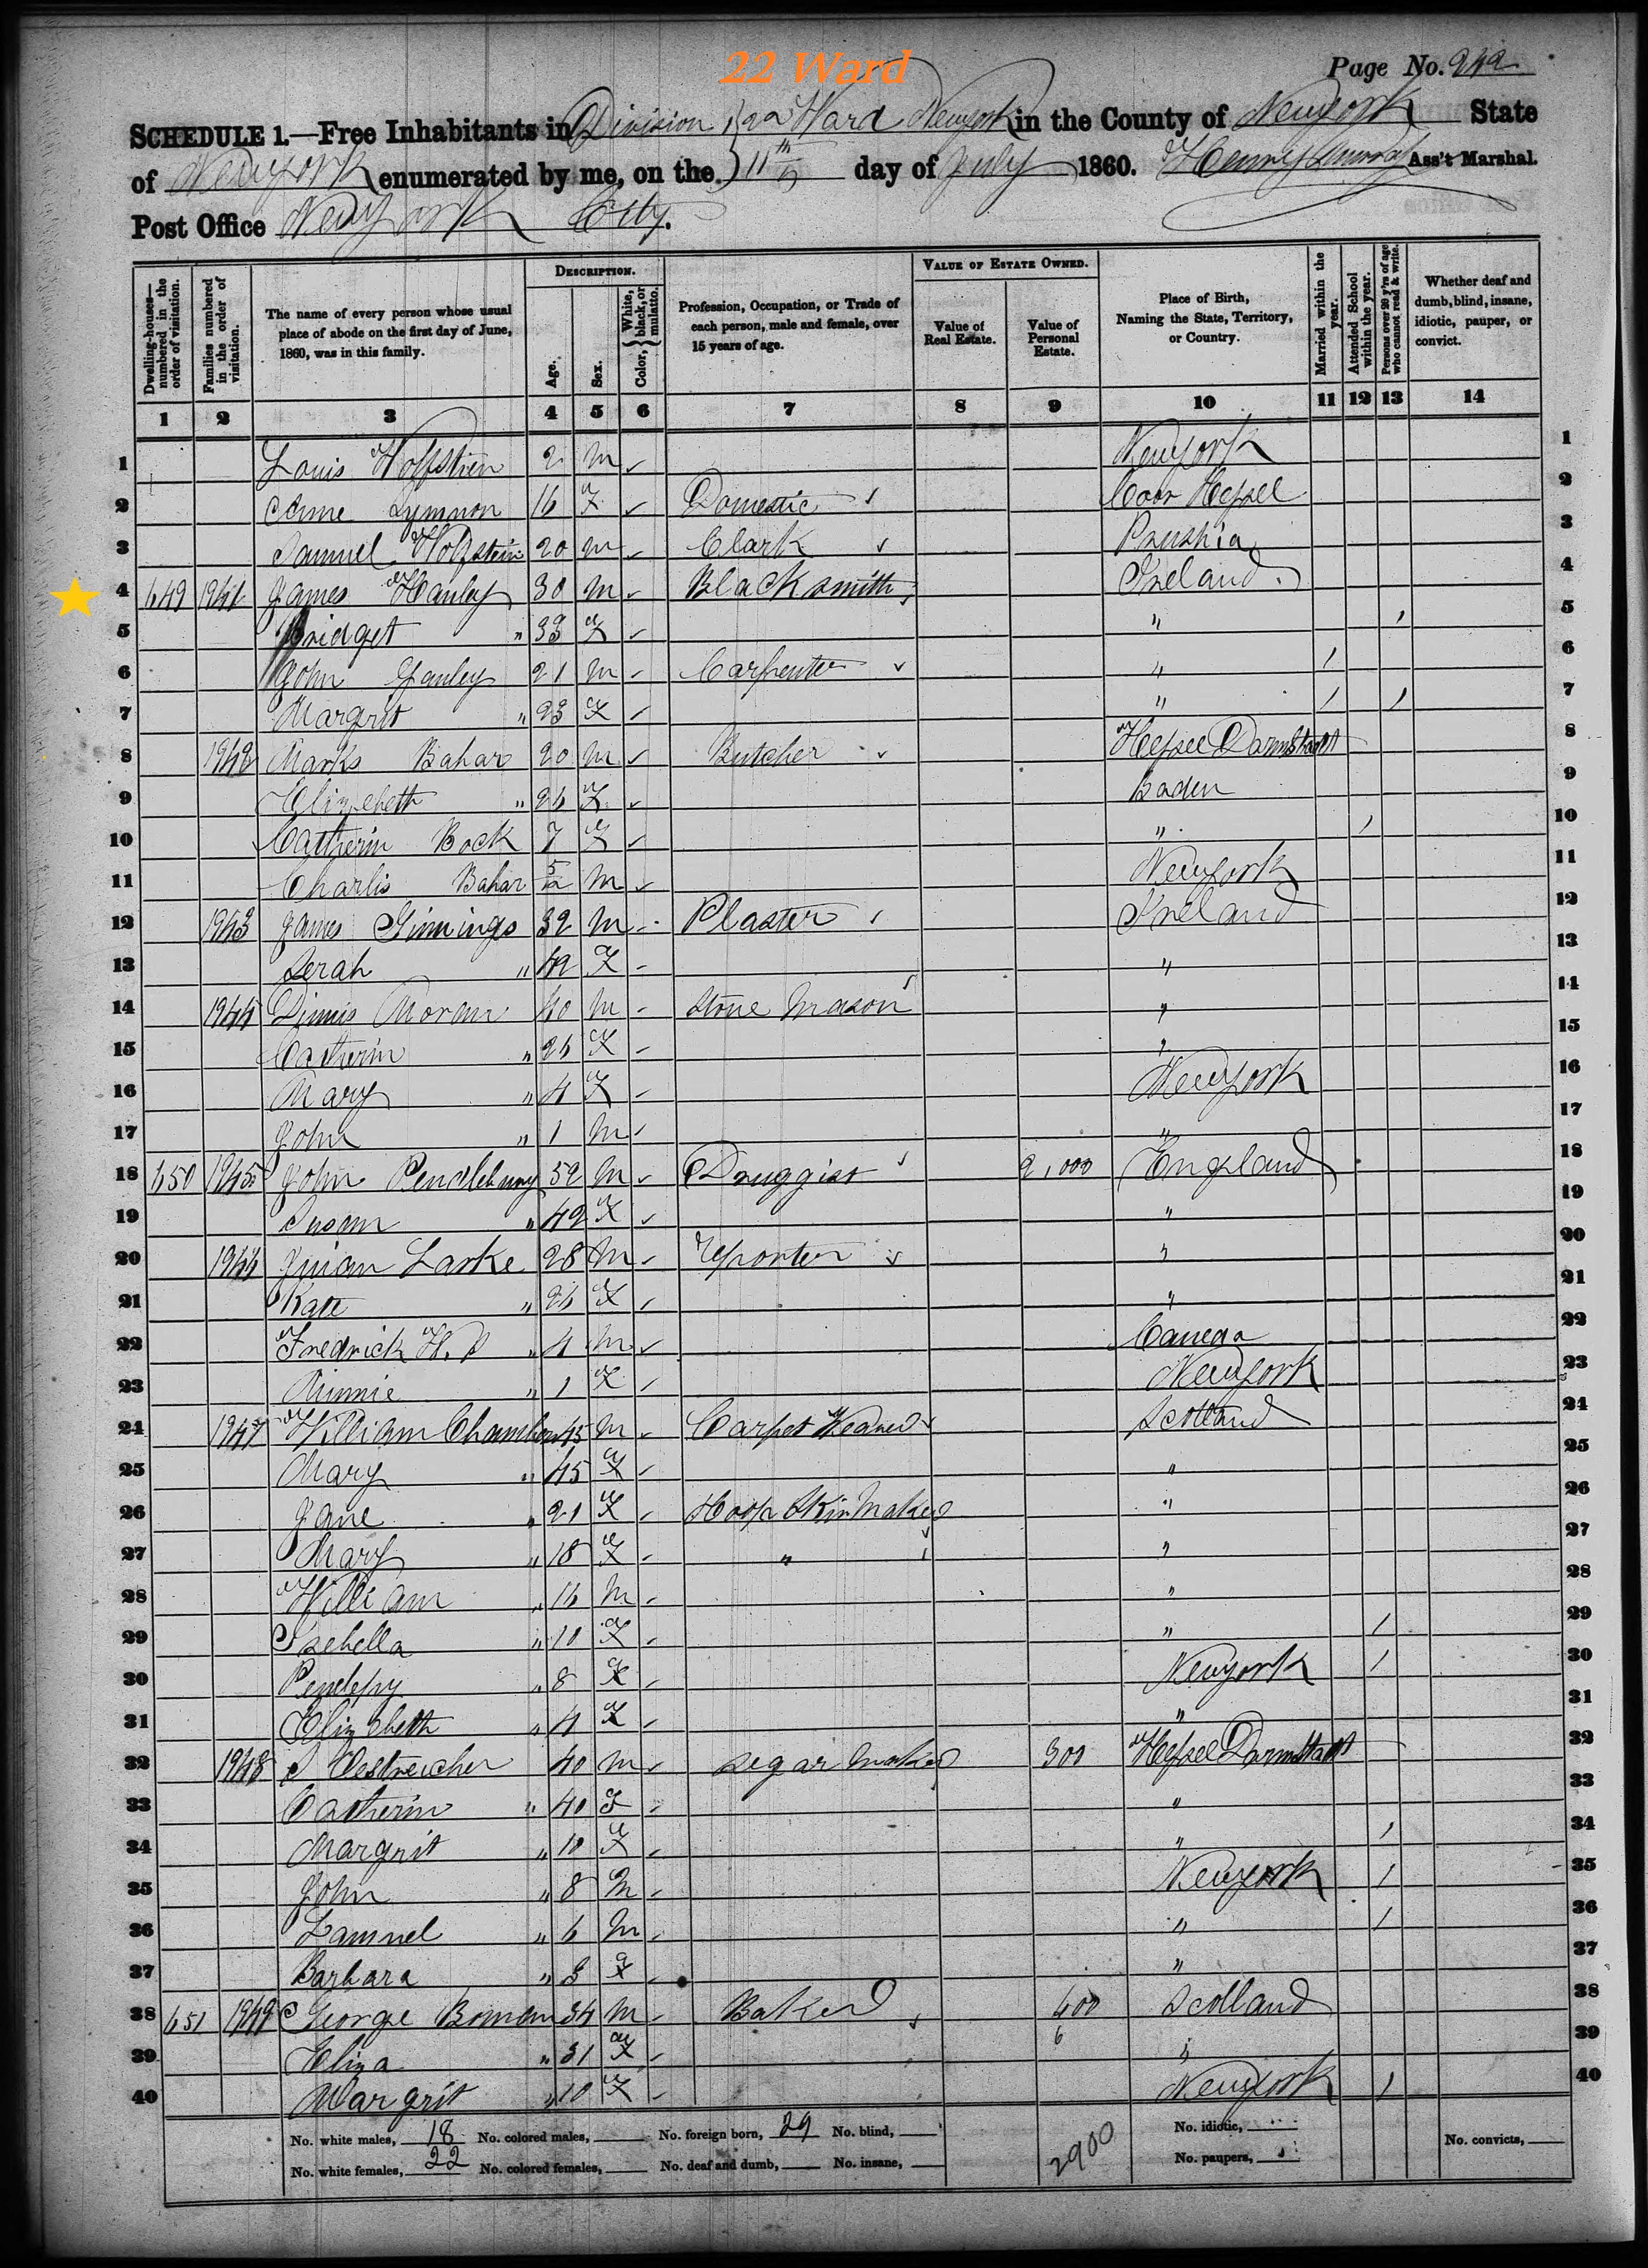 22 Ward
Page No. 242
SCHEDULE 1.—Free Inhabitants in Division 1 22 Ward Newyork in the County of Newyork State
of Newyork enumerated by me, on the 11th day of July 1860. Henry Ass't Marshal.
Post Office New York City.
Dwelling-houses—numbered in the order of visitation.
Families numbered in the order of visitation.
The name of every person whose usual place of abode on the first day of June, 1860, was in this family.
DESCRIPTION.
Age.
Sex.
Color, { White, black, or mulatto.
Profession, Occupation, or Trade of each person, male and female, over 15 years of age.
VALUE OF ESTATE OWNED.
Value of Real Estate.
Value of Personal Estate.
Place of Birth, Naming the State, Territory, or Country.
Married within the year.
Attended School within the year.
Persons over 20 y'rs of age who cannot read & write.
Whether deaf and dumb, blind, insane, idiotic, pauper, or convict.
1 2 3 4 5 6 7 8 9 10 11 12 13 14
1 Louis Hoffstien 2 m Newyork 1
2 Anne Lymnon 16 F Domestic 2
3 Samuel 20 m Clark Prushia 3
4 649 1941 James Hanley 30 m Blacksmith Ireland 4
5 Bridget " 33 F " / 5
6 John Ganley 21 m Carpenter " / 6
7 Margrit " 23 F " / / 7
8 1942 Marks Bahar 20 m Butcher Hessel Darmstadt 8
9 Elizebeth " 26 F Baden 9
10 Catherin Bock 7 F " / 10
11 Charlis Bahar 5/12 m Newyork 11
12 1943 James Ginnings 32 m Plaster Ireland 12
13 Serah " 42 F " 13
14 1944 Dinnis Moran 40 m Stone Mason " 14
15 Catherin " 26 F " 15
16 Mary " 4 F Newyork 16
17 John " 1 m " 17
18 650 1945 John Pendlebury 52 m Druggist 2,000 England 18
19 Susan " 42 F " 19
20 1946 Larke 28 m reporter " 20
21 Kate " 26 F " 21
22 Fredrick H. " 4 m Caneda 22
23 Minnie " 1 F Newyork 23
24 1947 William Chambers 45 m Carpet Weaver Scotland 24
25 Mary " 45 F " 25
26 Jane " 21 F Hoop Skirt Maker " 26
27 Mary " 18 F " " 27
28 William " 16 m " 28
29 Isebella " 10 F " / 29
30 " 8 F Newyork / 30
31 Elizebeth " 4 F " 31
32 1948 Oestreicher 40 m Segar maker 300 Hessel Darmstadt 32
33 Catherin " 40 F " 33
34 Margrit " 10 F " / 34
35 John " 8 m Newyork / 35
36 " 6 m " / 36
37 Barbara " 3 F " 37
38 651 1949 George Boman 34 m Baker 600 Scotland 38
39 Eliza " 31 F 6 " 39
40 Margrit " 10 F Newyork / 40
No. white males, 18 No. colored males, No. foreign born, 29 No. blind, No. idiotic,
No. white females, 22 No. colored females, No. deaf and dumb, No. insane, 2900 No. paupers, No. convicts,